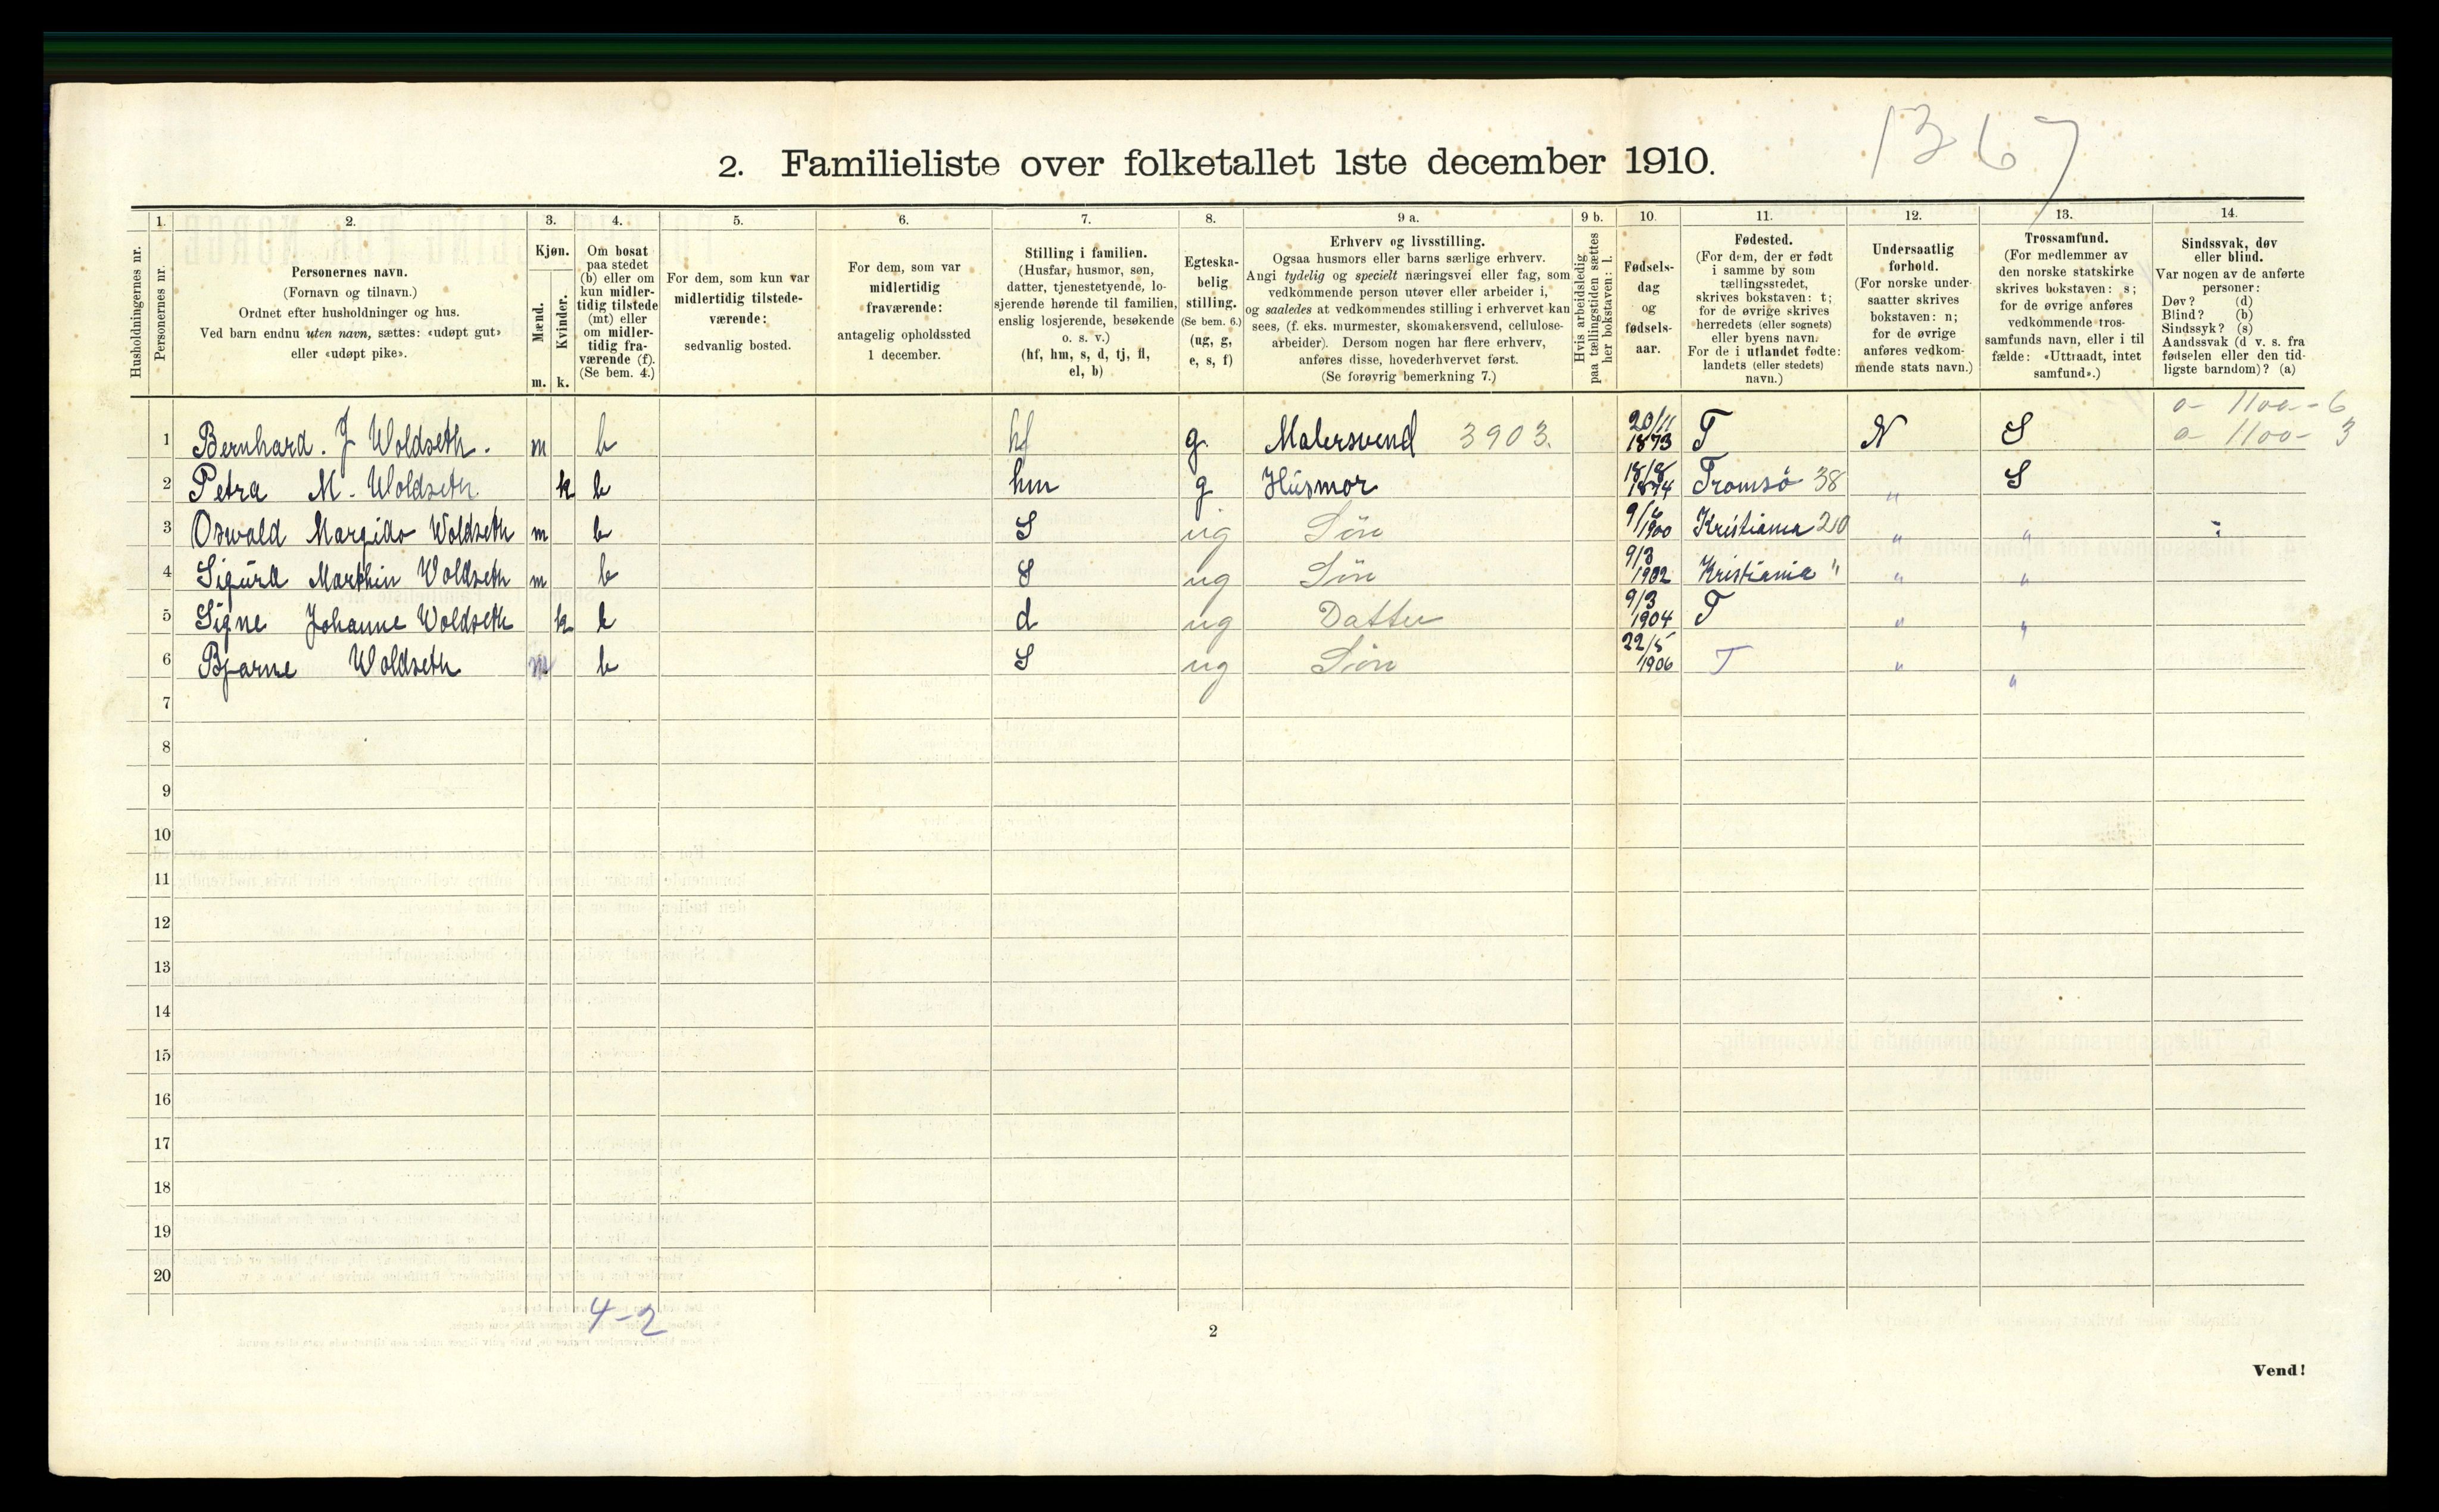 1367
2. Familieliste over folketallet 1ste december 1910.
1. 2. 3. 4. 5. 6. 7. 8. 9 a. 9 b. 10. 11. 12. 13. 14.
Husholdningernes nr.
Personernes nr.
Personernes navn.
(Fornavn og tilnavn.)
Ordnet efter husholdninger og hus.
Ved barn endnu uten navn, sættes: «udøpt gut»
eller «udøpt pike».
Kjøn.
Mænd.
Kvinder.
m. k.
Om bosat
paa stedet
(b) eller om
kun midler-
tidig tilstede
(mt) eller
om midler-
tidig fra-
værende (f).
(Se bem. 4.)
For dem, som kun var
midlertidig tilstede-
værende:
sedvanlig bosted.
For dem, som var
midlertidig
fraværende:
antagelig opholdssted
1 december.
Stilling i familien.
(Husfar, husmor, søn,
datter, tjenestetyende, lo-
sjerende hørende til familien,
enslig losjerende, besøkende
o. s. v.)
(hf, hm, s, d, tj, fl,
el, b)
Egteska-
belig
stilling.
(Se bem. 6.)
(ug, g,
e, s, f)
Erhverv og livsstilling.
Ogsaa husmors eller barns særlige erhverv.
Angi tydelig og specielt næringsvei eller fag, som
vedkommende person utøver eller arbeider i,
og saaledes at vedkommendes stilling i erhvervet kan
sees, (f. eks. murmester, skomakersvend, cellulose-
arbeider). Dersom nogen har flere erhverv,
anføres disse, hovederhvervet først.
(Se forøvrig bemerkning 7.)
Hvis arbeidsledig
paa tællingstiden sættes
her bokstaven: l.
Fødsels-
dag
og
fødsels-
aar.
Fødested.
(For dem, der er født
i samme by som
tællingsstedet,
skrives bokstaven: t;
for de øvrige skrives
herredets (eller sognets)
eller byens navn.
For de i utlandet fødte:
landets (eller stedets)
navn.)
Undersaatlig
forhold.
(For norske under-
saatter skrives
bokstaven: n;
for de øvrige
anføres vedkom-
mende stats navn.)
Trossamfund.
(For medlemmer av
den norske statskirke
skrives bokstaven: s;
for de øvrige anføres
vedkommende tros-
samfunds navn, eller i til
fælde: «Uttraadt, intet
samfund».)
Sindssvak, døv
eller blind.
Var nogen av de anførte
personer:
Døv? (d)
Blind? (b)
Sindssyk? (s)
Aandssvak (d v. s. fra
fødselen eller den tid-
ligste barndom)? (a)
0- 1100-6
0- 1100-3
1 Bernhard. J Woldseth. m b hf g. Malersvend 3903. 20/11 1873 T N S
2 Petra M. Woldseth k b hm g Husmor 18/8 1874 Tromsö 38 " S
3 Oswald Margido Woldseth m b S ug Sön 9/6 1900 Kristiania 210 " "
4 Sigurd Marthin Woldseth m b S ug Sön 9/3 1902 Kristiania " " "
5 Signe Johanne Woldseth k b d ug Datter 9/3 1904 T " "
6 Bjarne Woldseth m b S ug Sön 22/5 1906 T " "
7
8
9
10
11
12
13
14
15
16
17
18
19
20
4-2
2
Vend!